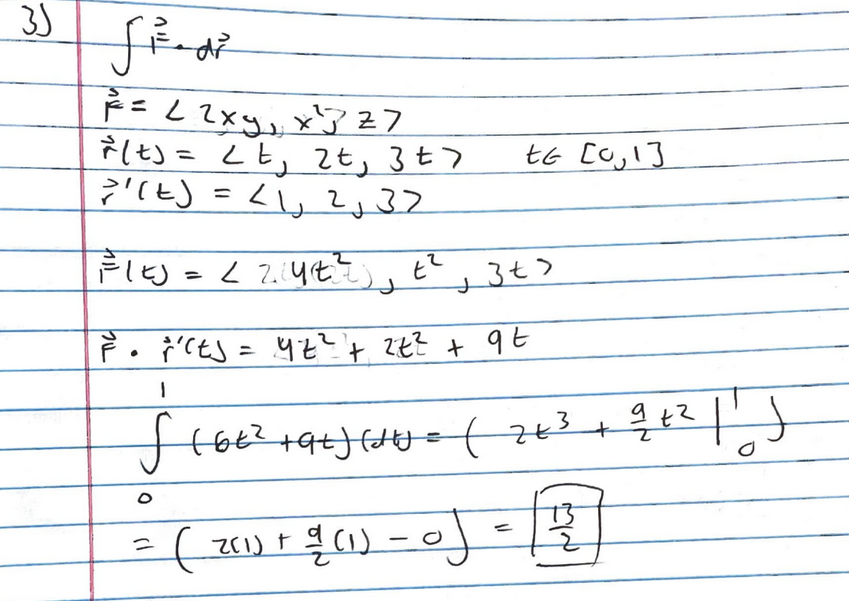 3)
∫ F⃗ · dr⃗
F⃗ = < 2xy, x², z >
r⃗(t) = < t, 2t, 3t > t ∈ [0, 1]
r⃗'(t) = < 1, 2, 3 >
F⃗(t) = < 4t², t², 3t >
F⃗ · r⃗'(t) = 4t² + 2t² + 9t
∫₀¹ (6t² + 9t)(dt) = ( 2t³ + 9/2 t² |₀¹ )
= ( 2(1) + 9/2 (1) - 0 ) = 13/2